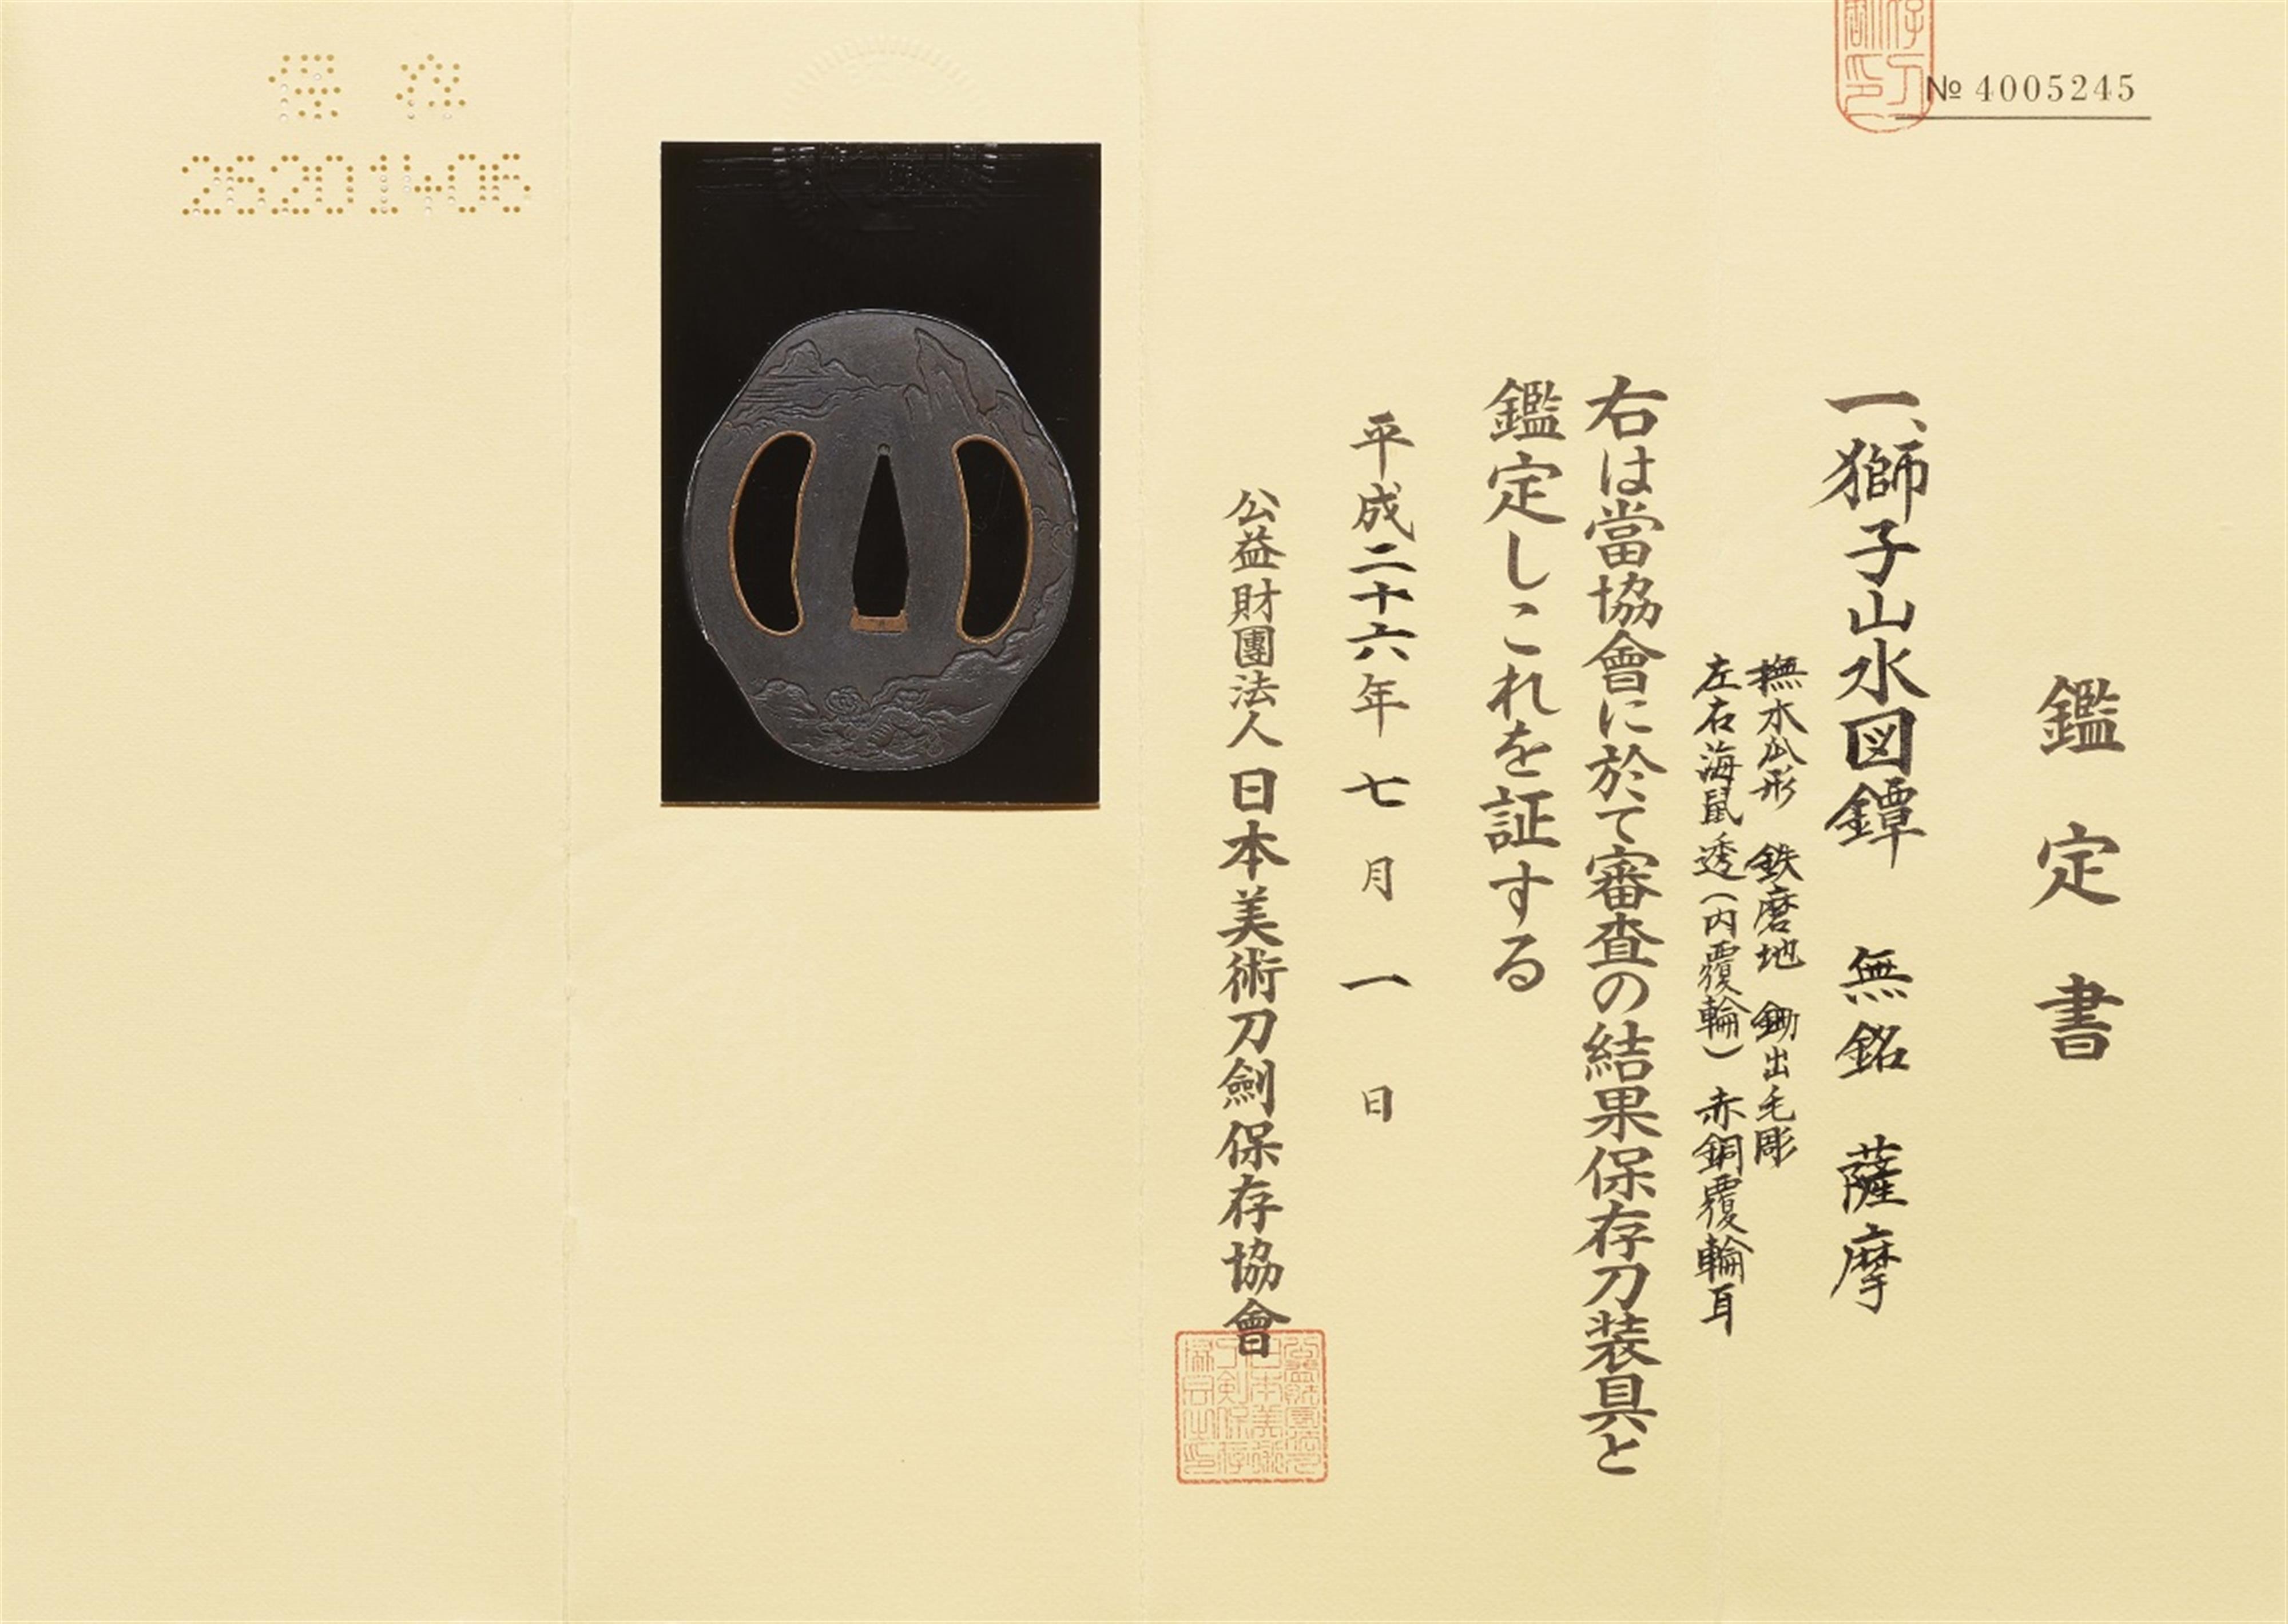 № 4005245
鑑定書
一、獅子山水図鐔 無銘 薩摩
撫木瓜形 鉄磨地 鋤出毛彫
左右海鼠透(内覆輪) 赤銅覆輪耳
右は當協會に於て審査の結果保存刀装具と
鑑定しこれを証する
平成二十六年七月一日
公益財團法人日本美術刀劍保存協會
保存
26201406